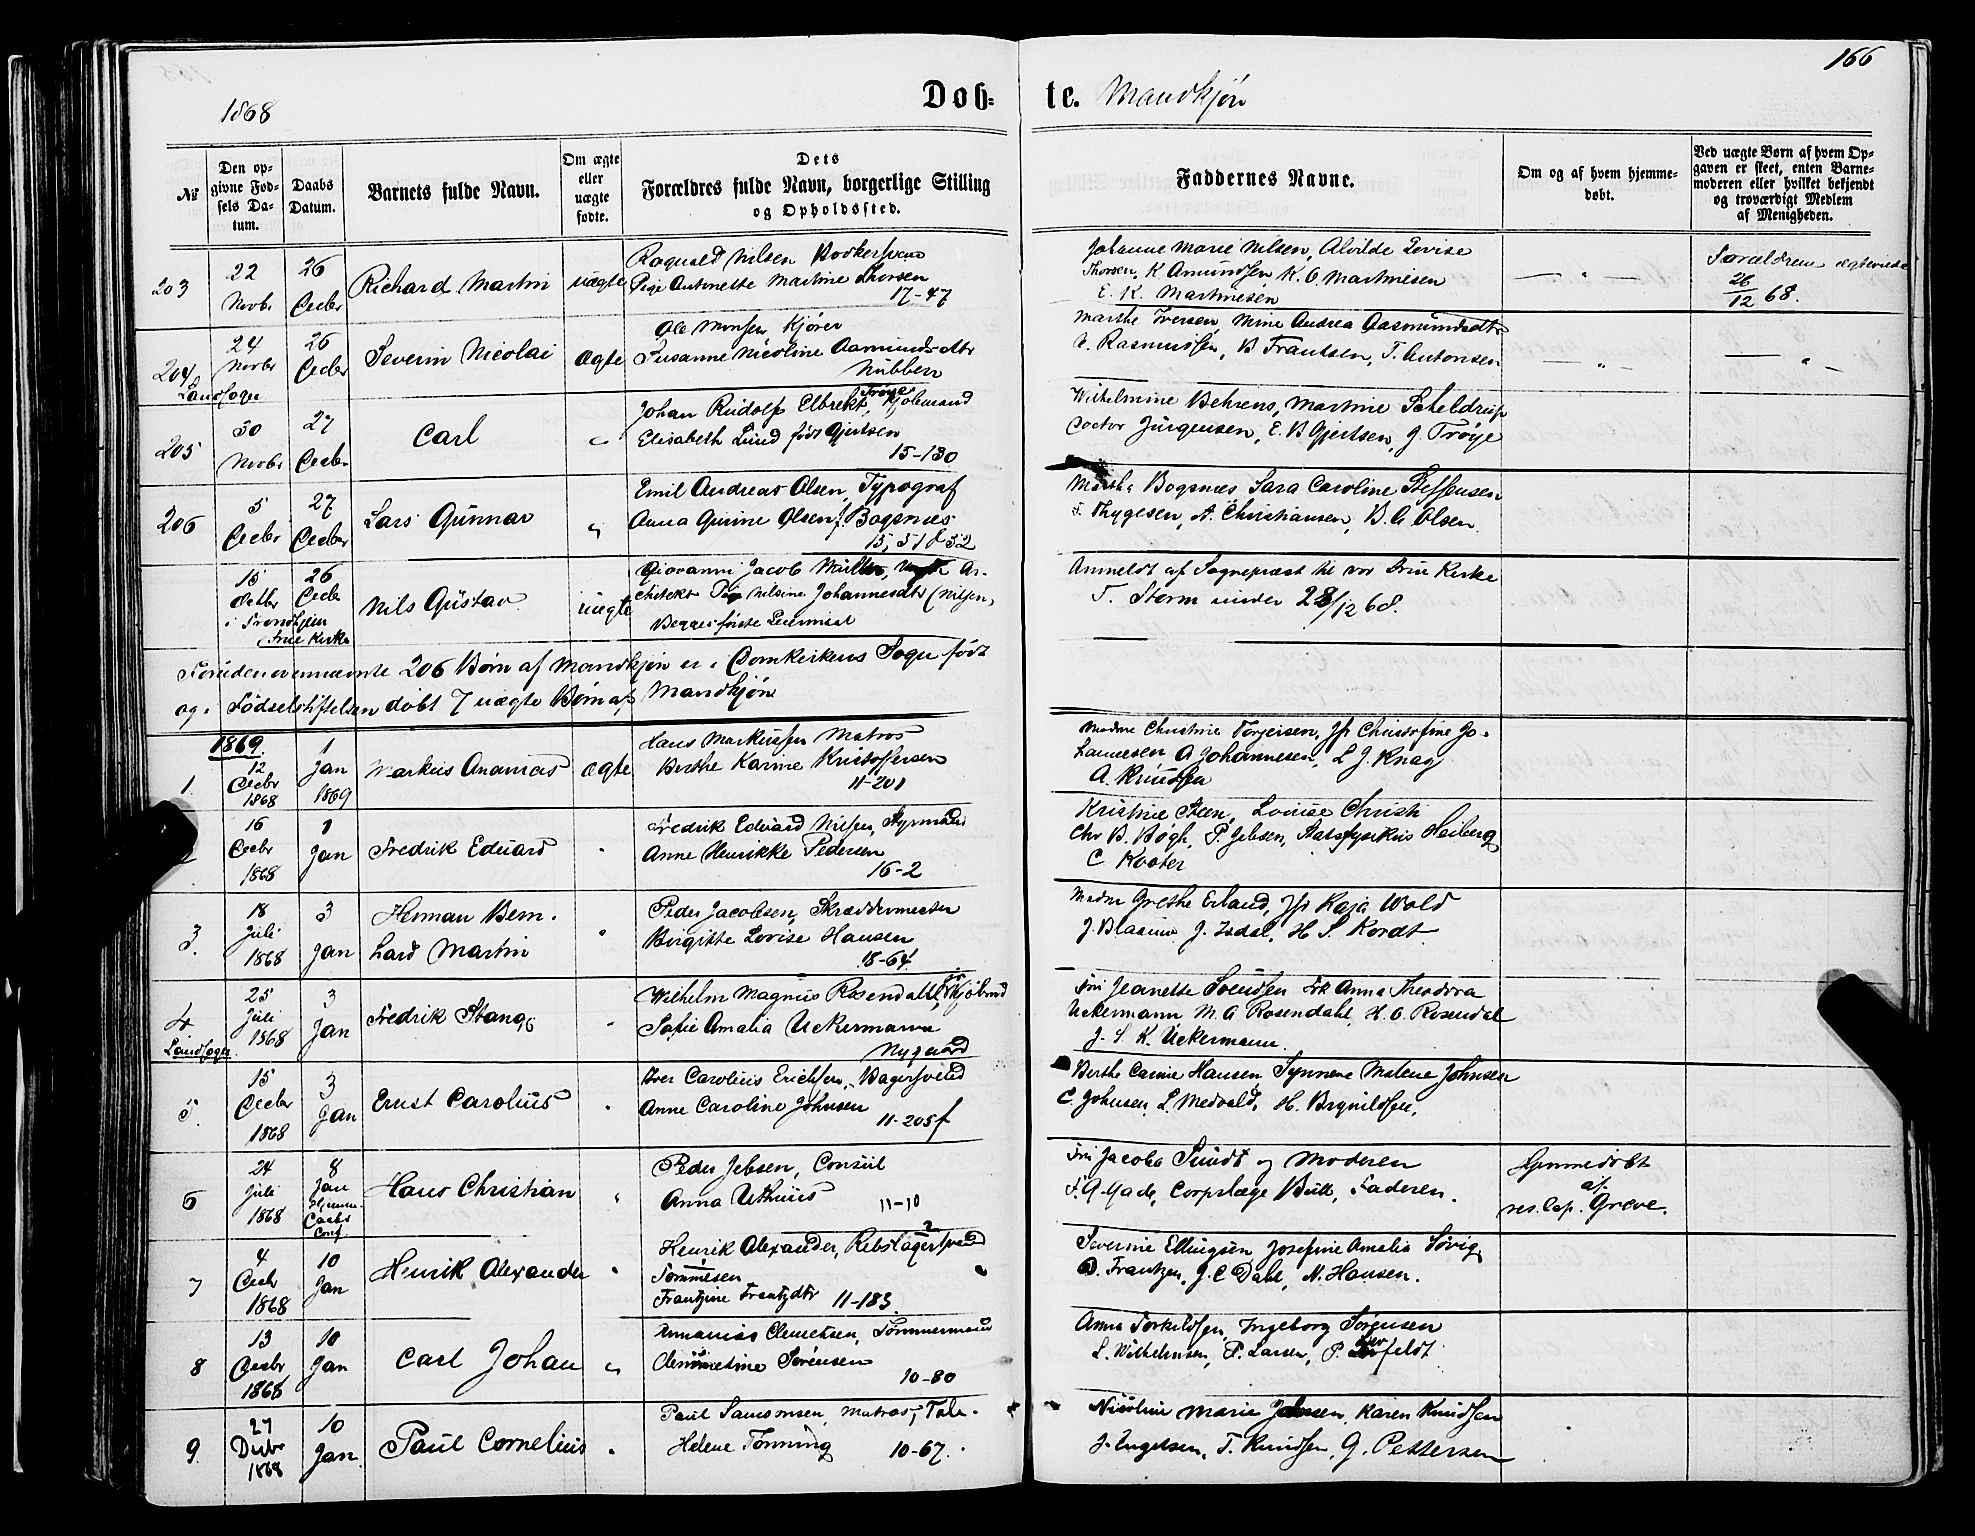 166
1868
Døb-
te. Mandkjøn
№
Den op-
givne Fød-
sels Da-
tum.
Daabs
Datum.
Barnets fulde Navn.
Om ægte
eller
uægte
fødte.
Dets
Forældres fulde Navn, borgerlige Stilling
og Opholdssted.
Faddernes Navne.
Om og af hvem hjemme-
døbt.
Ved uægte Børn af hvem Op-
gaven er skeet, enten Barne-
moderen eller hvilket bekjendt
og troværdigt Medlem
af Menigheden.
203
22
Novbr
26
Decbr
Richard Martin
uægte
Ragvald Nilsen Bødkersvend
Pige Antonette Martine Thorsen
17-47
Johanne Marie Nilsen, Alvilde Lovise
Thorsen, K Amundsen K. O. Martinesen
E. K. Martinesen
Forældrene ægteviede
26/12 68.
204
Landsogn
24
Novbr
26
Decbr
Severin Nicolai
ægte
Ole Monsen Kjører
Susanne Nicoline Aamundsdtr
Nubben
Marthe Iversen, Mine Andrea Aasmundsdtr
Rasmussen, B Frantsen, T. Antonsen
205
30
Novbr
27
Decbr
Carl
"
Johan Rudolf Elbrekt Trøye, Kjøbmand
Elisabeth Lund født Gjertsen
15-130
Wilhelmine Behrens, Martine Scheldrup
Doctor Jürgensen, E. B Gjertsen, J. Trøye
206
5
Decbr
27
Decbr
Lars Gunnar
"
Emil Andreas Olsen, Typograf
Anna Gurine Olsen f. Bogsnes
15, 51 & 52
Martha Bogsnes, Sara Caroline Steffensen
T. Thygesen, A. Christiansen, B. A Olsen
15
Octbr
i Trondhjem
Frue Kirke
26
Decbr
Nils Gustav
uægte
Giovanni Jacob Müller, Ar-
chitekt Pige Nilsine Johannesdtr (Nilsen)
Begges første Leiermaal
Anmeldt af Sognepræst til vor Frue Kirke
F. Storm under 28/12 68.
Foruden ovennævnte 206 Børn af Mandkjøn er i Domkirkens Sogn født
og i Fødselsstiftelsen døbt 7 uægte Børn af Mandkjøn
1869.
1.
12
Decbr
1868
1
Jan
1869
Markus Ananias
ægte
Hans Markussen Matros
Berthe Karine Kristoffersen
11-201
Madm Christine Torgersen, Jfr Christofine Jo-
hannesen A Johannesen, L J. Knag
A. Knudsen
16
Decbr
1868
1
Jan
Fredrik Eduard
"
Fredrik Eduard Nilsen, Styrmand
Anne Henrikke Pedersen
16-2
Kristine Steen, Louise Christi
Chr B. Bøgh, P. Jebsen, Statsfysikus Heiberg
C Kooter
3.
18
Juli
1868
3
Jan
Herman Bern-
hard Martin
"
Peder Jacobsen, Skræddermester
Birgitte Lovise Hansen
18-64
Madm Grethe Erland, Jfr Kaja Wold
J. Blaauw J. Isdal, H. S. Kordt
4
Landsogn
25
Juli
1868
3
Jan
Fredrik Stang
"
Wilhelm Magnus Rosendahl, jr Kjøbmd
Sofie Amalia Uckermann
Nygaard
Fru Jeanette Svendsen Frk Anna Theodora
Uckermann M. A Rosendahl, H. O. Rosendal
J. S K. Uckermann.
5.
15
Decbr
1868
3
Jan
Ernst Carolius
"
Iver Carolius Erichsen, Bagersvend
Anne Caroline Johnsen
11-205f
Berthe Carine Hansen, Synneve Malene Johnsen
C. Johnsen, L. Medvold, H. Brynildsen,
6
24
Juli
1868
8
Jan
Hjemme-
Daabs
Conf.
Hans Christian
"
Peder Jebsen, Consul
Anna Uthuus
11-10
Fru Jacobe Sundt og Moderen
F. G. Gade, Corpslæge Bull, Faderen.
Hjemmedøbt
af
res. Cap. Greve.
7
4
Decbr
1868
10
Jan
Henrik Alexander
"
Henrik Alexander, Rebslagersvend
Tommesen
Frantzine Frantzdtr 11-183
Severine Ellingsen, Josefine Amalia Søvig
D. Frantzen, J. C Dahl, N. Hansen.
8
13
Decbr
1868
10
Jan
Carl Johan
"
Annanias Clemetsen, Tømmermand
Clemmetine Sørensen
10-80
Anna Torkildsen, Ingeborg Sørensen
L. Wilhelmsen, P. Larsen,
9.
27
Decbr
1868
10
Jan.
Paul Cornelius
"
Paul Samsonsen, Matros, Tale-
Helene Tonning 10-67.
Nicoline Marie Johnsen, Karen Knudsen
J. Engelsen, T. Knudsen, G. Pettersen